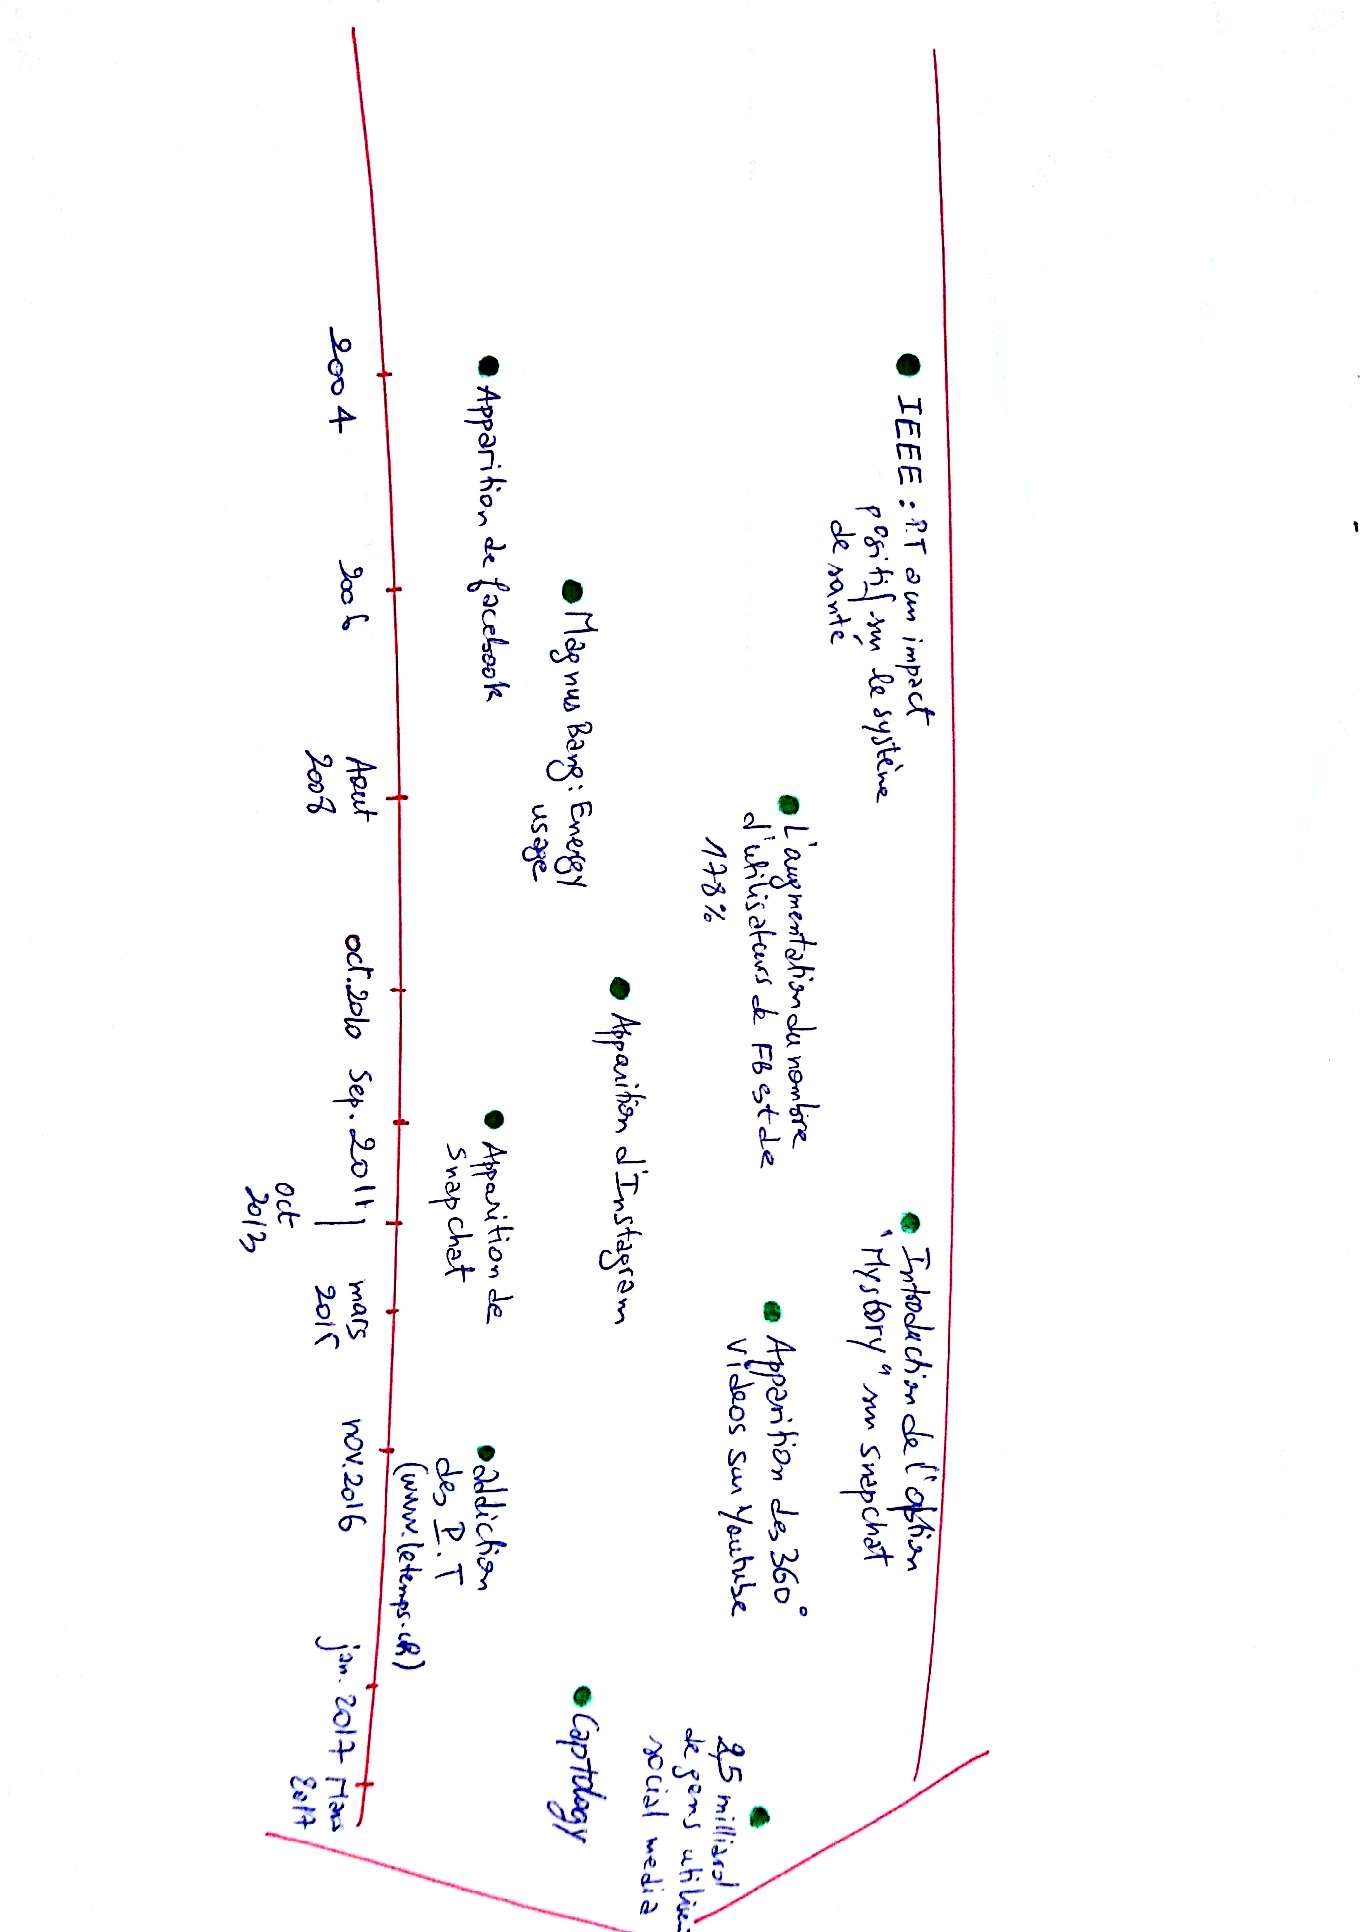 IEEE : P.T a un impact
positif sur le système
de santé
Introduction de l'option
"Mystory" sur snapchat
L'augmentation du nombre
d'utilisateurs de FB est de
178%
Apparition des 360°
videos sur Youtube
2,5 milliard
de gens utilisen
social media
Apparition d'Instagram
Magnus Bang: Energy
usage
Captology
Apparition de facebook
Apparition de
snapchat
addiction
des P.T
(www.letemps.ch)
2004
2006
Aout
2008
oct.2010
Sep. 2011
oct
2013
mars
2015
nov.2016
jan. 2017
Mars
2017